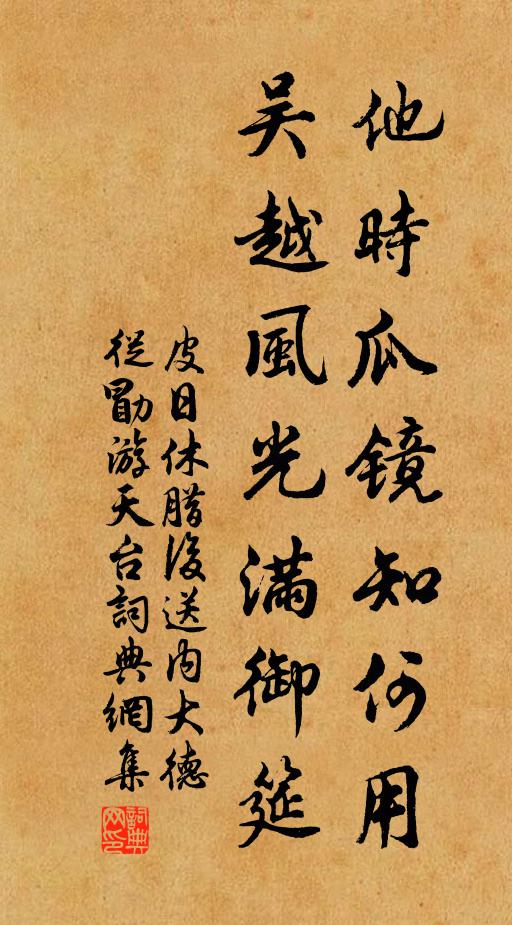 他時瓜鏡知何用
吳越風光滿御筵
皮日休腊後送内大德
從勖游天台詞典網集
詞典网印